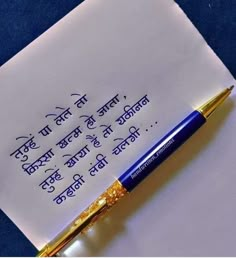 तुम्हें पा लेते तो
किस्सा खत्म हो जाता,
तुम्हें खोया है तो यकीनन
कहानी लंबी चलेगी ...